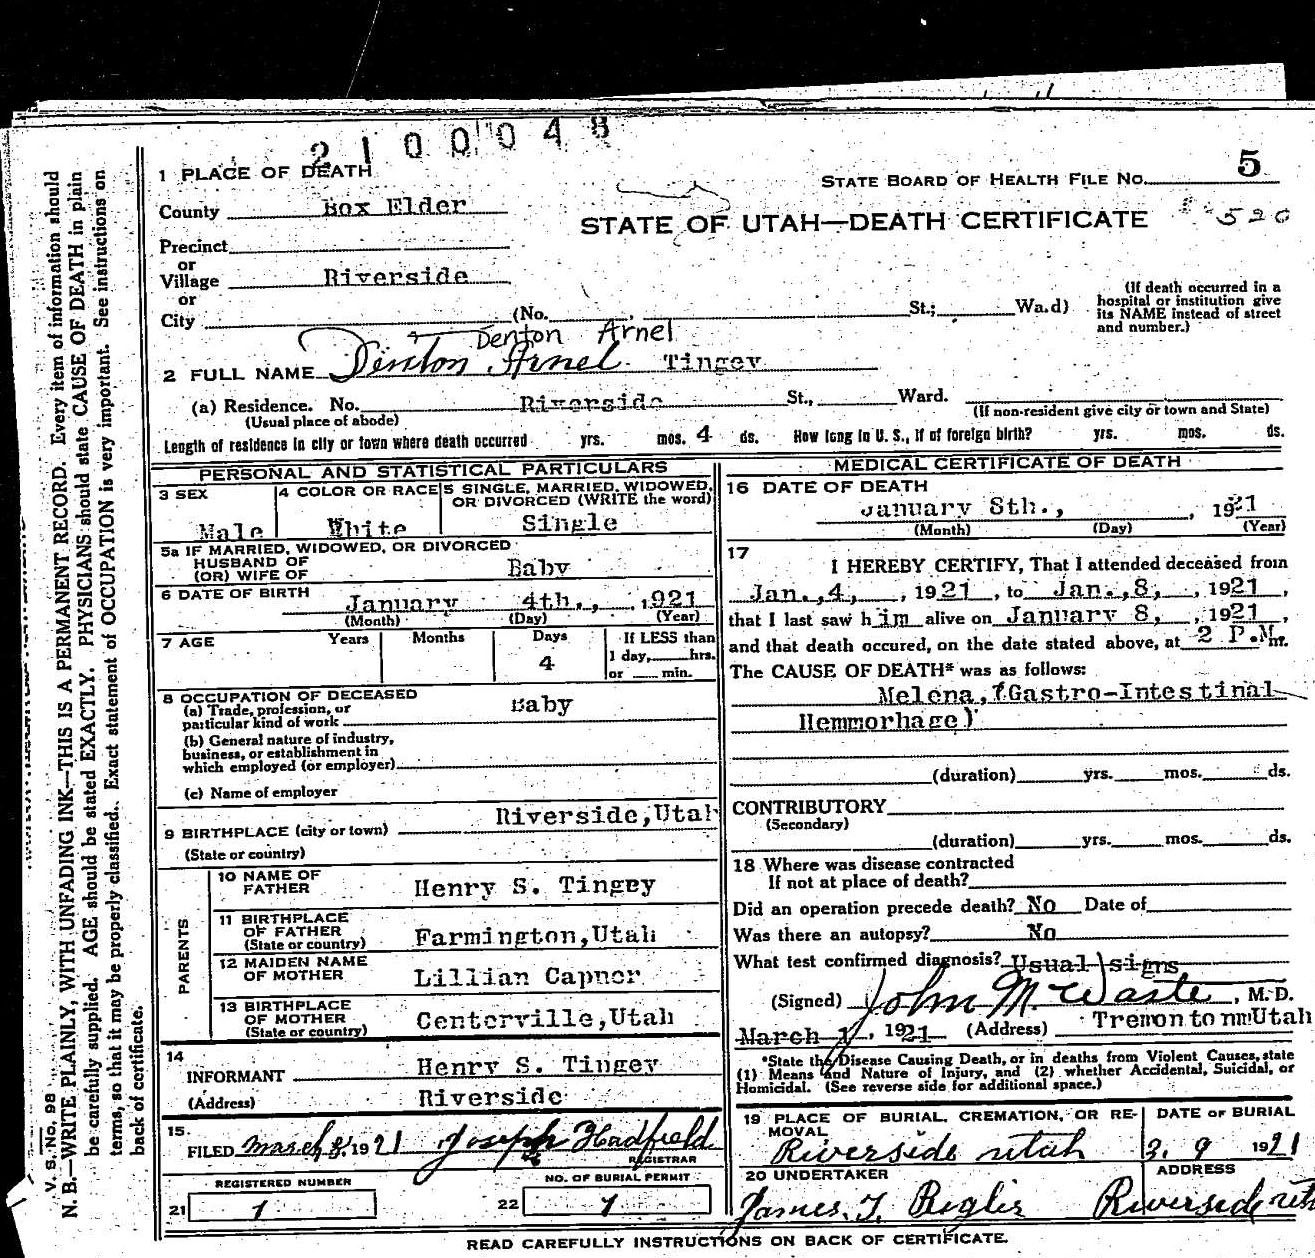 2100048
1 PLACE OF DEATH
STATE BOARD OF HEALTH FILE NO. 5
County Box Elder
STATE OF UTAH—DEATH CERTIFICATE 520
Precinct
or
Village Riverside
or
City (No. , St.; Wa.d)
(If death occurred in a
hospital or institution give
its NAME instead of street
and number.)
Denton Arnel
2 FULL NAME Denton Arnel Tingey
(a) Residence. No. Riverside St., Ward.
(Usual place of abode)
(If non-resident give city or town and State)
Length of residence in city or town where death occurred yrs. mos. 4 ds. How long in U. S., if of foreign birth? yrs. mos. ds.
PERSONAL AND STATISTICAL PARTICULARS
3 SEX
Male
4 COLOR OR RACE
White
5 SINGLE, MARRIED, WIDOWED,
OR DIVORCED (WRITE the word)
Single
5a IF MARRIED, WIDOWED, OR DIVORCED
HUSBAND OF
(OR) WIFE OF
Baby
6 DATE OF BIRTH
January 4th., , 1921
(Month) (Day) (Year)
7 AGE Years Months Days
4
If LESS than
1 day, hrs.
or min.
8 OCCUPATION OF DECEASED
(a) Trade, profession, or
particular kind of work
Baby
(b) General nature of industry,
business, or establishment in
which employed (or employer)
(c) Name of employer
9 BIRTHPLACE (city or town) Riverside,Utah
(State or country)
PARENTS
10 NAME OF
FATHER
Henry S. Tingey
11 BIRTHPLACE
OF FATHER
(State or country)
Farmington,Utah
12 MAIDEN NAME
OF MOTHER
Lillian Capner
13 BIRTHPLACE
OF MOTHER
(State or country)
Centerville,Utah
14
INFORMANT Henry S. Tingey
(Address) Riverside
15
FILED march 8, 1921 Joseph Hadfield
REGISTRAR
REGISTERED NUMBER
21 1
NO. OF BURIAL PERMIT
22 1
MEDICAL CERTIFICATE OF DEATH
16 DATE OF DEATH
January 8th., , 1921
(Month) (Day) (Year)
17
I HEREBY CERTIFY, That I attended deceased from
Jan.,4, , 1921 , to Jan.,8, , 1921 ,
that I last saw h im alive on January 8, , 1921 ,
and that death occured, on the date stated above, at 2 P.M. m.
The CAUSE OF DEATH* was as follows:
Melena,(Gastro-Intestinal
Hemmorhage)
(duration) yrs. mos. ds.
CONTRIBUTORY
(Secondary)
(duration) yrs. mos. ds.
18 Where was disease contracted
If not at place of death?
Did an operation precede death? No Date of
Was there an autopsy? No
What test confirmed diagnosis? Usual signs
(Signed) John M. Waste , M. D.
March 1, , 1921 (Address) TremontonmUtah
*State the Disease Causing Death, or in deaths from Violent Causes, state
(1) Means and Nature of Injury, and (2) whether Accidental, Suicidal, or
Homicidal. (See reverse side for additional space.)
19 PLACE OF BURIAL, CREMATION, OR RE-
MOVAL
Riverside utah
DATE OF BURIAL
3. 9 1921
20 UNDERTAKER
ADDRESS
James T. Riverside
READ CAREFULLY INSTRUCTIONS ON BACK OF CERTIFICATE.
V. S. No. 98
N. B.—WRITE PLAINLY, WITH UNFADING INK—THIS IS A PERMANENT RECORD. Every item of information should
be carefully supplied. AGE should be stated EXACTLY. PHYSICIANS should state CAUSE OF DEATH in plain
terms, so that it may be properly classified. Exact statement of OCCUPATION is very important. See instructions on
back of certificate.